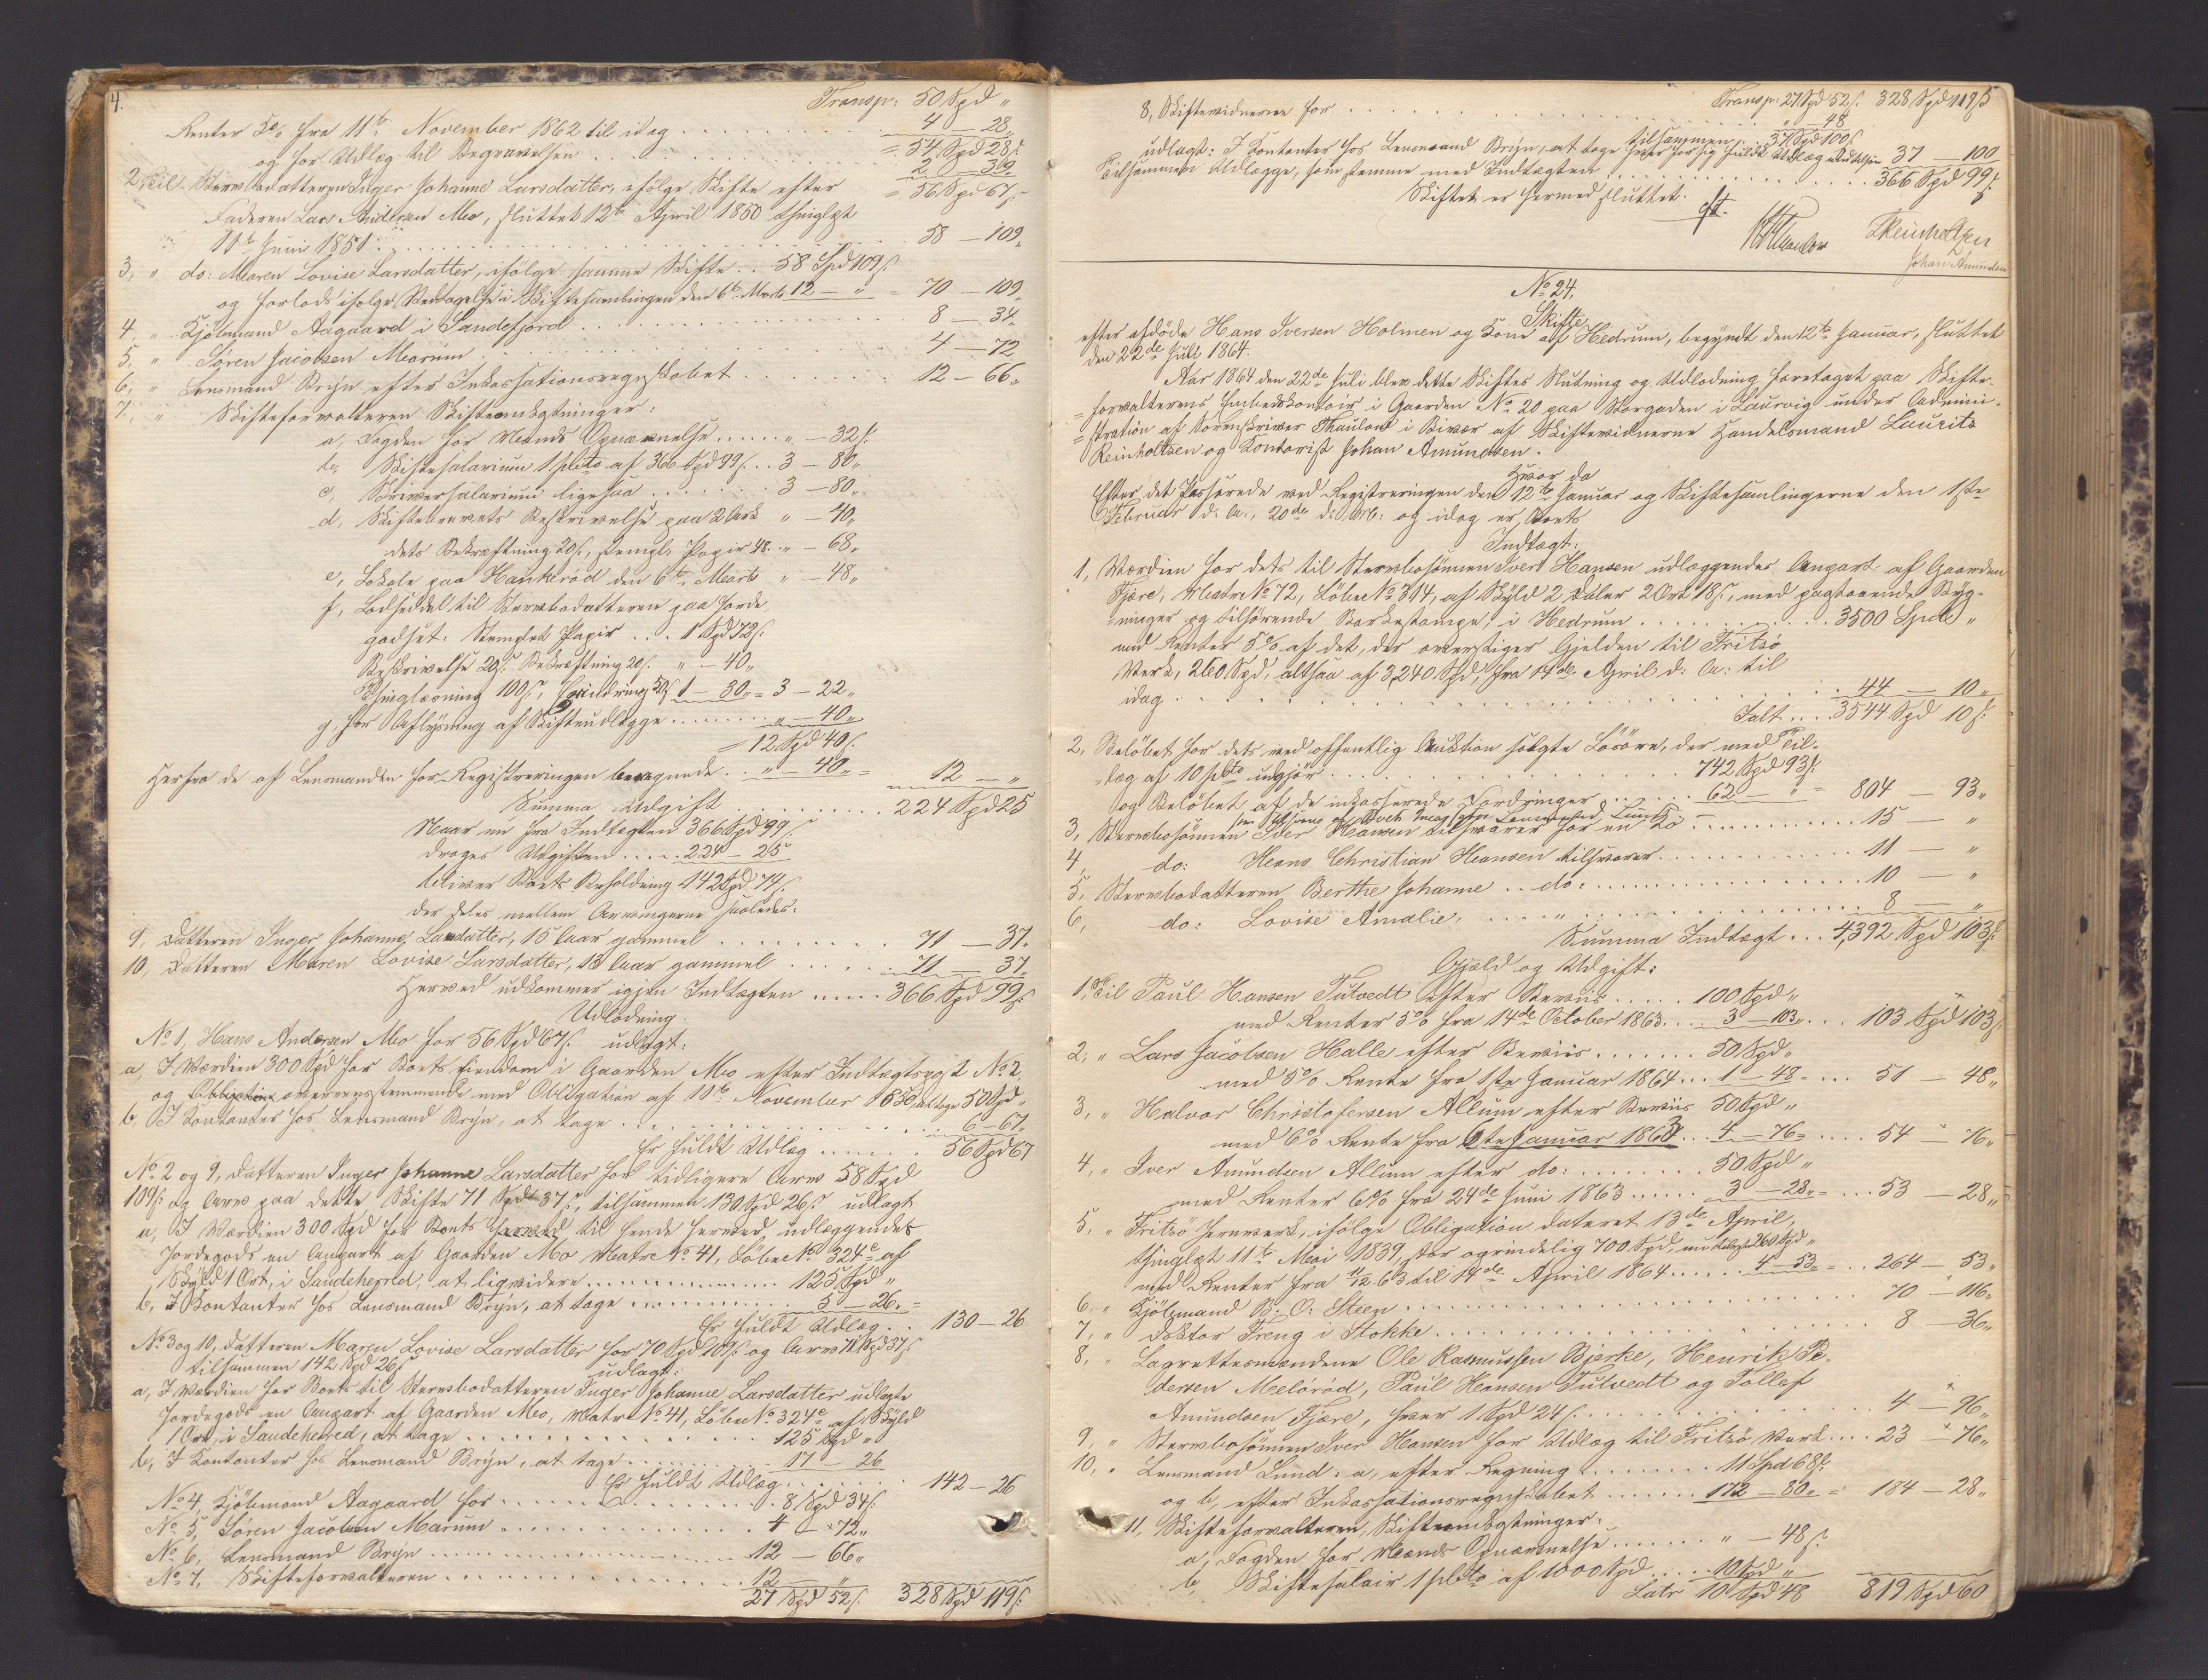 4.
Transp: 50 Spd "
Renter 5% fra 11te November 1862 til idag . . . 4 — 28„
= 54 Spd 28 s.
og for Udlæg til Begravelsen . . . 2 — 39„
= 56 Spd 67 s.
2, Til Stervbodatteren Inger Johanne Larsdatter, ifølge Skifte efter
Faderen Lars Andersen Moe, sluttet 12te April 1850 thinglæst
11te Juni 1851 . . . 58 — 109„
3, " do: Maren Lovise Larsdatter, ifølge samme Skifte . . 58 Spd 109 s.
og forlods ifølge Vedtagelse i Skiftesamlingen den 6te Marts 12 — " = 70 — 109„
4, " Kjøbmand Aagaard i Sandefjord . . . 8 — 34„
5, " Søren Jacobsen Marum . . . 4 — 72
6, " Lensmand Bryn efter Inkassationsregnskabet . . . 12 — 66„
7, " Skifteforvalteren Skifteomkostninger:
a, Fogden for Mænds Opnævnelse . . . " — 32 s.
b, Skiftesalarium 1 pCto af 366 Spd 99 s. . . 3 — 80„
c, Skriversalarium ligesaa . . . 3 — 80„
d, Skiftebrevets Beskrivelse paa 2 Ark " — 40„
dets Bekræftning 20 s., stempl. Papir 48. " — 68„
e, Lokale paa Haukerød den 6te Marts " — 48„
f, Lodseddel til Stervbodatteren paa Jorde-
godset: Stemplet Papir . . . 1 Spd 72 s.
Beskrivelse 20 s. Bekræftning 20 s. " — 40„
Thinglæsning 100 s., 50 s. 1 — 30„ = 3 — 22„
g, for Aflysning af Skifteudlægge . . . " — 40„
= 12 Spd 40 s.
Herfra de af Lensmanden for Registreringen beregnede . . " — 40„ = 12 — "
Summa Udgift . . . 224 Spd 25
Naar nu fra Indtægten 366 Spd 99 s.
drages Udgiften . . . 224 — 25
bliver Boets Beholdning 142 Spd 74 s.
der deles mellem Arvingerne saaledes:
9, Datteren Inger Johanne Larsdatter, 15 Aar gammel . . . 71 — 37„
10, Datteren Maren Lovise Larsdatter, 13 Aar gammel . . . 71 — 37„
Herved udkommer igjen Indtægten . . . 366 Spd 99 s.
Udlodning.
No 1, Hans Andersen Moe for 56 Spd 67 s. udlagt:
a, I Værdien 300 Spd for Boets Eiendom i Gaarden Moe efter Indtægtspost No 2
og Obligation overensstemmende med Obligation af 11te November 1850, at tage 50 Spd „
b, I Kontanter hos Lensmand Bryn, at tage . . . 6 — 67„
Er fuldt Udlæg . . . 56 Spd 67
No 2 og 9, Datteren Inger Johanne Larsdatter for tidligere Arv 58 Spd
109 s. og Arv paa dette Skifte 71 Spd 37 s., tilsammen 130 Spd 26 s. udlagt
a, I Værdien 300 Spd for Boets herved til hende herved udlæggendes
Jordegods en Anpart af Gaarden Mo Matr. No. 41, Løbe No 324c af
Skyld 1 Ort, i Sandeherred, at liqvidere . . . 125 Spd „
b, I Kontanter hos Lensmand Bryn, at tage . . . 5 — 26„ =
Er fuldt Udlæg . . 130 — 26
No 3 og 10, Datteren Maren Lovise Larsdatter for 70 Spd 109 s. og Arv 71 Spd 37 s.
tilsammen 142 Spd 26 s. udlagt:
a, I Værdien for Boets til Stervbodatteren Inger Johanne Larsdatter udlagte
Jordegods en Anpart af Gaarden Moe, Matr. No. 41, Løbe No 324c af Skyld
1 Ort, i Sandeherred, at tage . . . 125 Spd „
b, I Kontanter hos Lensmand Bryn, at tage . . . 17 — 26
Er fuldt Udlæg . . . 142 — 26
No 4, Kjøbmand Aagaard for . . . 8 Spd 34 s.
No 5, Søren Jacobsen Marum . . . 4 — 72„
No 6, Lensmand Bryn . . . 12 — 66„
No 7, Skifteforvalteren . . . 12 — "
27 Spd 52 s. 328 Spd 119 s.
Transp: 27 Spd 52 s. 328 Spd 119 s
8, Skiftevidnerne for . . . " — 48
tilsammen: 37 Spd 100 s.
udlagt: I Kontanter hos Lensmand Bryn, at tage hver for sig fuldt Udlæg med tilsammen 37 — 100
Tilsammen Udlægge, som stemme med Indtægten . . . 366 Spd 99 s.
Skiftet er hermed sluttet.
Thaulow LReinholtsen
Johan Amundsen
No 24.
Skifte
efter afdøde Hans Iversen Holmen og Kone af Hedrum, begyndt den 12te Januar, sluttet
den 22de Juli 1864.
Aar 1864 den 22de Juli blev dette Skiftes Slutning og Udlodning foretaget paa Skifte-
forvalterens Embedskontoir i Gaarden No 20 paa Storgaden i Laurvig under Admini-
stration af Sorenskriver Thaulow i Bivær af Skiftevidnerne Handelsmand Laurits
Reinholtsen og Kontorist Johan Amundsen.
Hvor da
Efter det Passerede ved Registreringen den 12te Januar og Skiftesamlingerne den 1ste
Februar d. A., 20de d. M. og idag er Boets
Indtægt:
1, Værdien for dets til Stervbosønnen Iver Hansen udlæggendes Anpart af Gaarden
Fjære, Matr. No 72, Løbe No 314, af Skyld 2 Daler 2 Ort 18 s., med paastaaende Byg-
ninger og tilhørende Barkestampe, i Hedrum . . . 3500 Spd „
med Renter 5% af det, der overstiger Gjelden til Fritsø
Værk, 260 Spd, altsaa af 3,240 Spd, fra 14de April d: A: til
idag . . . 44 — 10„
Ialt . . . 3544 Spd 10 s.
2, Beløbet for dets ved offentlig Auktion solgte Løsøre, der med Til-
læg af 10 pCto udgjør . . . 742 Spd 93 s.
og Beløbet af de inkasserede Fordringer . . . 62 — " = 804 — 93„
3, Stervbosønnen Iver Hansen tilsvarer for en Ko . . . 15 — "
4, do: Hans Christian Hansen tilsvarer . . . 11 — "
5, Stervbodatteren Berthe Johanne . . do: . . . 10 — "
6, do: Lovise Amalie, . . . " . . . 8 — "
Summa Indtægt . . . 4,392 Spd 103 s.
Gjæld og Udgift:
1, Til Paul Hansen Tutvedt efter Beviis . . . 100 Spd „
med Renter 5% fra 14de October 1863 . . . 3 — 103„ . . . 103 Spd 103 s.
2, " Lars Jacobsen Halle efter Beviis . . . 50 Spd „
med 5% Rente fra 1ste Januar 1864 . . . 1 — 48„ . . . 51 — 48„
3, " Halvor Christofersen Allum efter Beviis 50 Spd „
med 6% Rente fra 6te Januar 1863 . . . 4 — 76„ . . . 54 — 76„
4, " Iver Amundsen Allum efter do: . . . 50 Spd „
med Renter 6% fra 24de Juni 1863 . . . 3 — 28„ = . . . 53 — 28„
5, " Fritsø Jernværk, ifølge Obligation dateret 13de April,
thinglæst 11te Mai 1839, stor oprindelig 700 Spd, nu 260 Spd „
med Renter fra 11/12-63 til 14de April 1864 . . . 4 — 53„ = . . 264 — 53„
6, " Kjøbmand B: O: Steen . . . 70 — 116„
7, " Doktor Treng i Stokke . . . 8 — 36„
8, " Lagrettesmændene Ole Rasmussen Bjerke, Henrik Pe-
dersen Melørød, Paul Hansen Tutvedt og Tollef
Amundsen Fjære, hver 1 Spd 24 s. . . . 4 — 96„
9, " Stervbosønnen Iver Hansen for Udlæg til Fritsø Værk . . . 23 — 76„
10, " Lensmand Lund: a, efter Regning . . . 11 Spd 68 s.
og b, efter Inkassationsregnskabet . . . 172 — 80„ = 184 — 28„
11, Skifteforvalteren, Skifteomkostninger:
a, Fogden for Mænds Opnævnelse . . . " — 48 s.
b, Skiftesalair 1 pCto af 1000 Spd . . . 10 Spd „
Latr 10 Spd 48 819 Spd 60